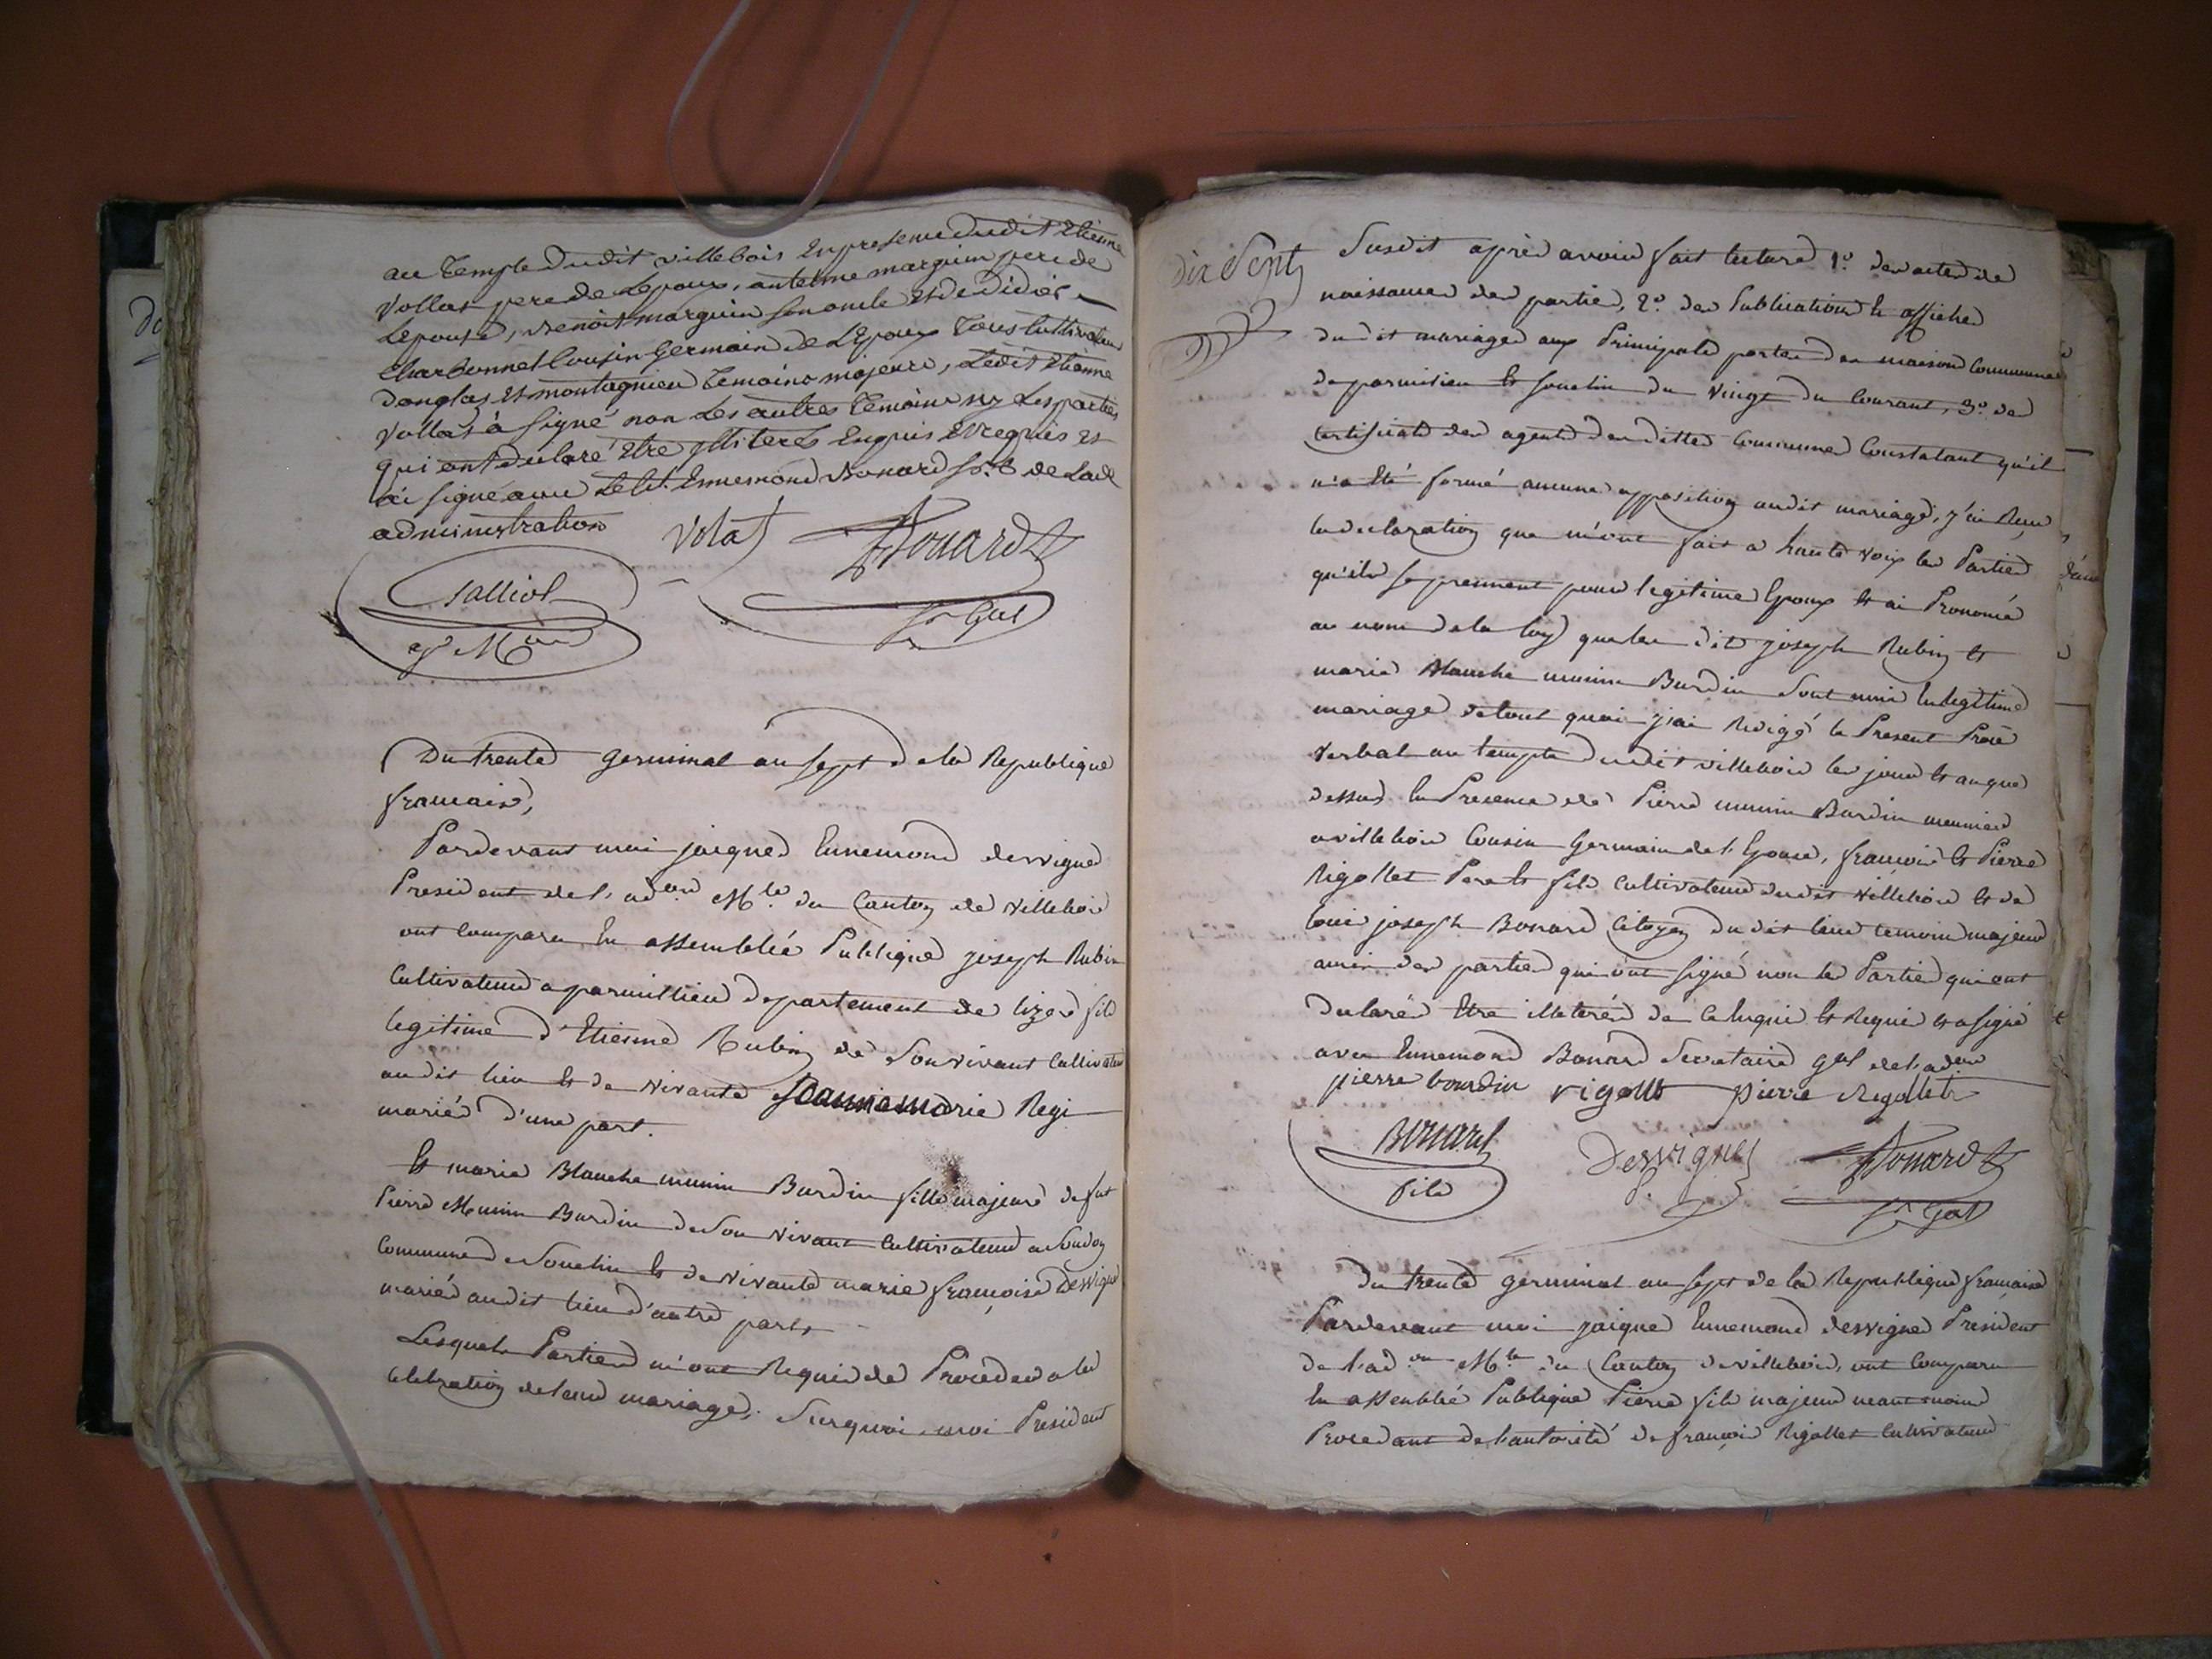 au Temple dudit villebois En presence dudit Etienne
Vollat pere de Lepoux, antelme marguin pere de
Lepouse, Benoit marguin son oncle Et de Didier
Charbonnet Cousin Germain de L'Epoux Tous Cultivateurs
Donglas Et montagnieu Temoins majeurs, Ledit Etienne
Vollat à Signé non Les autres Temoins ny Les parties
qui ont declaré Etre illiterés Enquis Et requis Et
ai signé avec Le Cit. Ennemond Bonard S.re de Lad.
administration
Volat Bonard
Galliot S.re Gal
Du trente germinal an sept de la Republique
francaise,
Pardevant moi jacques Ennemond dervigne
President de l'ad.on M.le du Canton de Villebois
ont comparu En assemblée Publique joseph Rubin
Cultivateur a parmillieu departement de lizere fils
legitime d'Etienne Rubin de Son vivant Cultivateur
audit lieu Et de vivante Jeanne marie Regi
mariés d'une part.
Et marie Blanche munin Burdin fille majeure de fut
Pierre Munin Burdin de Son vivant Cultivateur a Soudon
Commune de Souclin Et de vivante marie françoise Dervigne
mariés audit lieu d'autre part,
Lesquels Parties m'ont Requis de Proceder a la
celebration de leur mariage, Surquoi moi President
dix Sept
Susdit après avoir fait lecture 1.o des actes de
naissance des parties, 2.o des Publications Et affiches
dudit mariage aux Principale portes des maisons Communes
de parmilieu Et Souclin du vingt du Courant, 3.o des
Certificats des agents des dittes Communes Constatant qu'il
n'a Eté formé aucune opposition audit mariage, j'ai Reçu
la declaration que m'ont fait a haute voix les Parties
qu'ils se prennent pour legitime Epoux Et ai Prononcé
au nom de la loy que les dits joseph Rubin Et
marie Blanche munin Burdin Sont unis En legitime
mariage de tout quoi j'ai Redigé le Present Procès
Verbal au temple dudit villebois les jour Et an que
dessus En Presence de Pierre munin Burdin meunier
a villebois Cousin Germain de l'Epouse, françois Et Pierre
Rigollet Pere Et fils Cultivateurs dudit villebois Et de
Louis joseph Bonard Citoyen du dit lieu temoins majeurs
amis des parties qui ont signé non les Parties qui ont
declarés Etre illeterés de ce Enquis Et Requis Et a signé
avec Ennemond Bonard Secretaire gal de l'ad.on
pierre bourdin rigollet pierre Rigollet
Bonard Dervigne Bonard
fils P. S.re Gal
Du trente germinal an sept de la Republique française
Pardevant moi jacques Ennemond dervigne President
de l'ad.on M.le du Canton de villebois, ont Comparu
En assemblée Publique Pierre fils majeur neant moins
Procedant de l'autorité de françois Rigollet Cultivateur